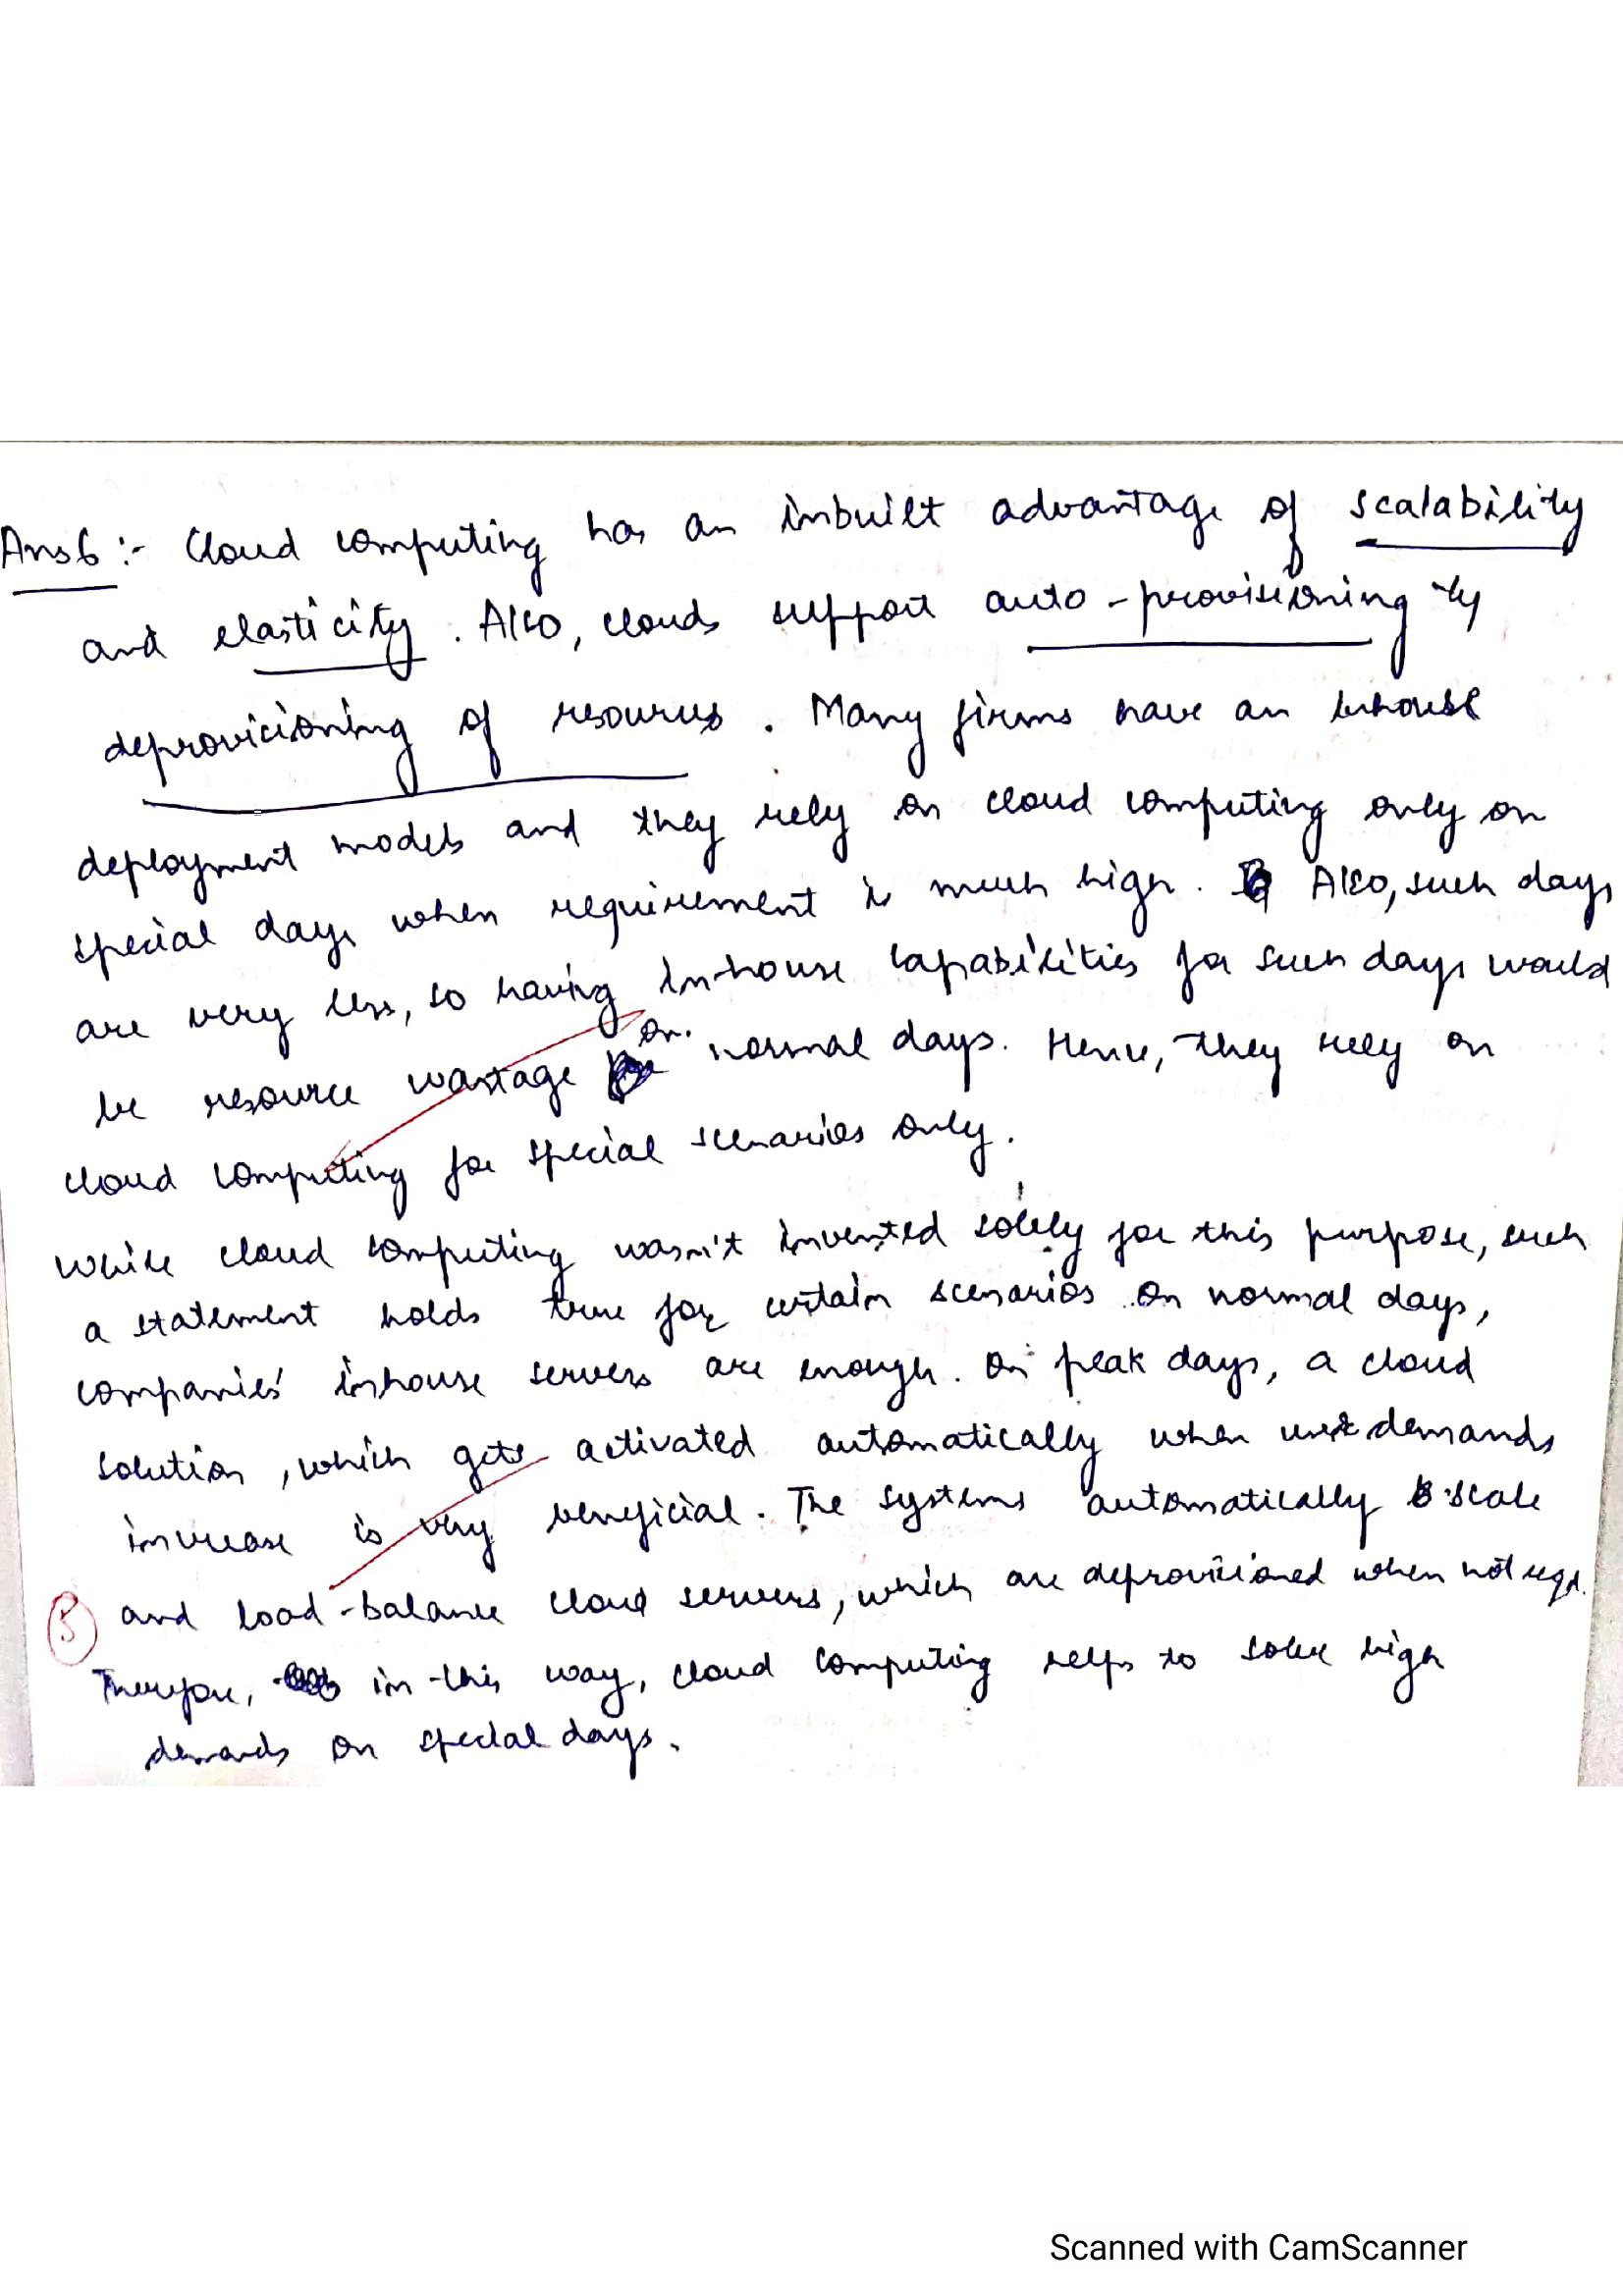 Ans6 :- Cloud computing has an inbuilt advantage of scalability
and elasticity. Also, clouds support auto-provisioning
deprovicisioning of resources. Many firms have an inhouse
deployment models and they rely on cloud computing only on
special days when requirement is much high. Also, such days
are very less, so having inhouse capabilities for such days would
be resource wastage on normal days. Hence, they rely on
cloud computing for special scenarios only.
While cloud computing wasn't invented solely for this purpose, such
a statement holds true for certain scenarios. On normal days,
companies' inhouse servers are enough. On peak days, a cloud
solution, which gets activated automatically when demands
increase is very beneficial. The systems automatically scale
5 and load-balance cloud servers, which are deprovisioned when not reqd.
Therefore, in this way, cloud computing helps to solve high
demands on special days.
Scanned with CamScanner